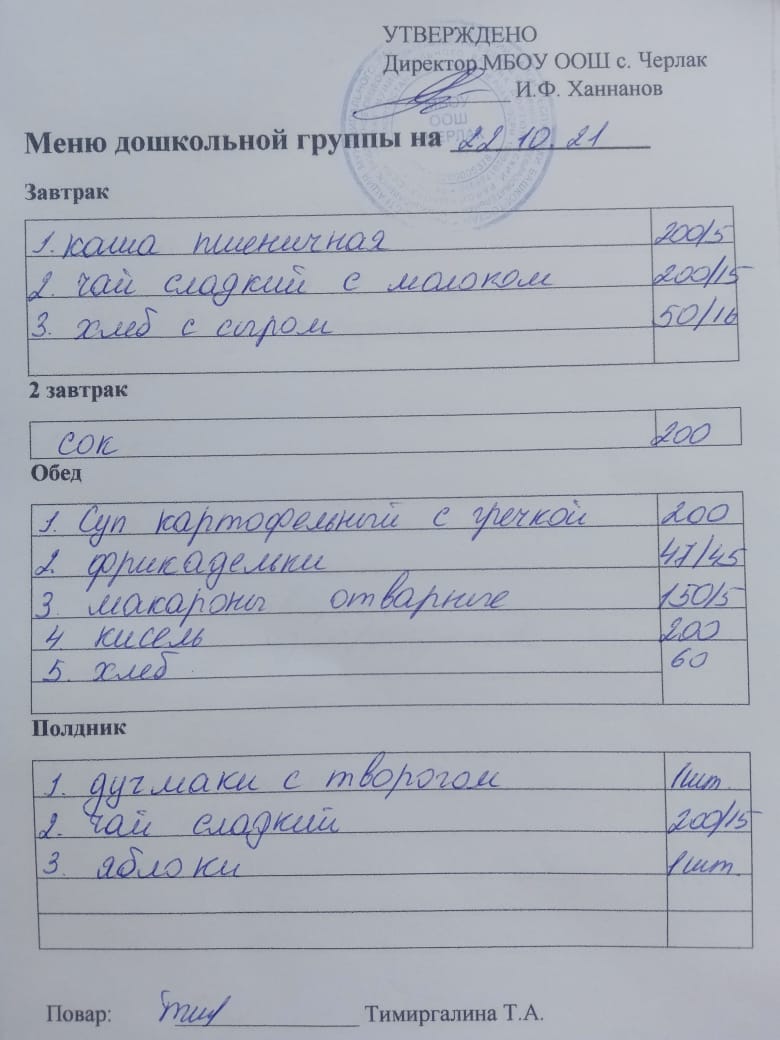 УТВЕРЖДЕНО
Директор МБОУ ООШ с. Черлак
И.Ф. Ханнанов
МБОУ
ООШ
ЧЕРЛАК
Меню дошкольной группы на 22.10.21
Завтрак
1. каша пшеничная 200/5
2. чай сладкий с молоком 200/15
3. хлеб с сыром 50/16
2 завтрак
сок 200
Обед
1. Суп картофельный с гречкой 200
2. фрикадельки 47/45
3. макароны отварные 150/5
4. кисель 200
5. хлеб 60
Полдник
1. дучмаки с творогом 1 шт.
2. чай сладкий 200/15
3. яблоки 1 шт.
Повар: Тимиргалина Т.А.